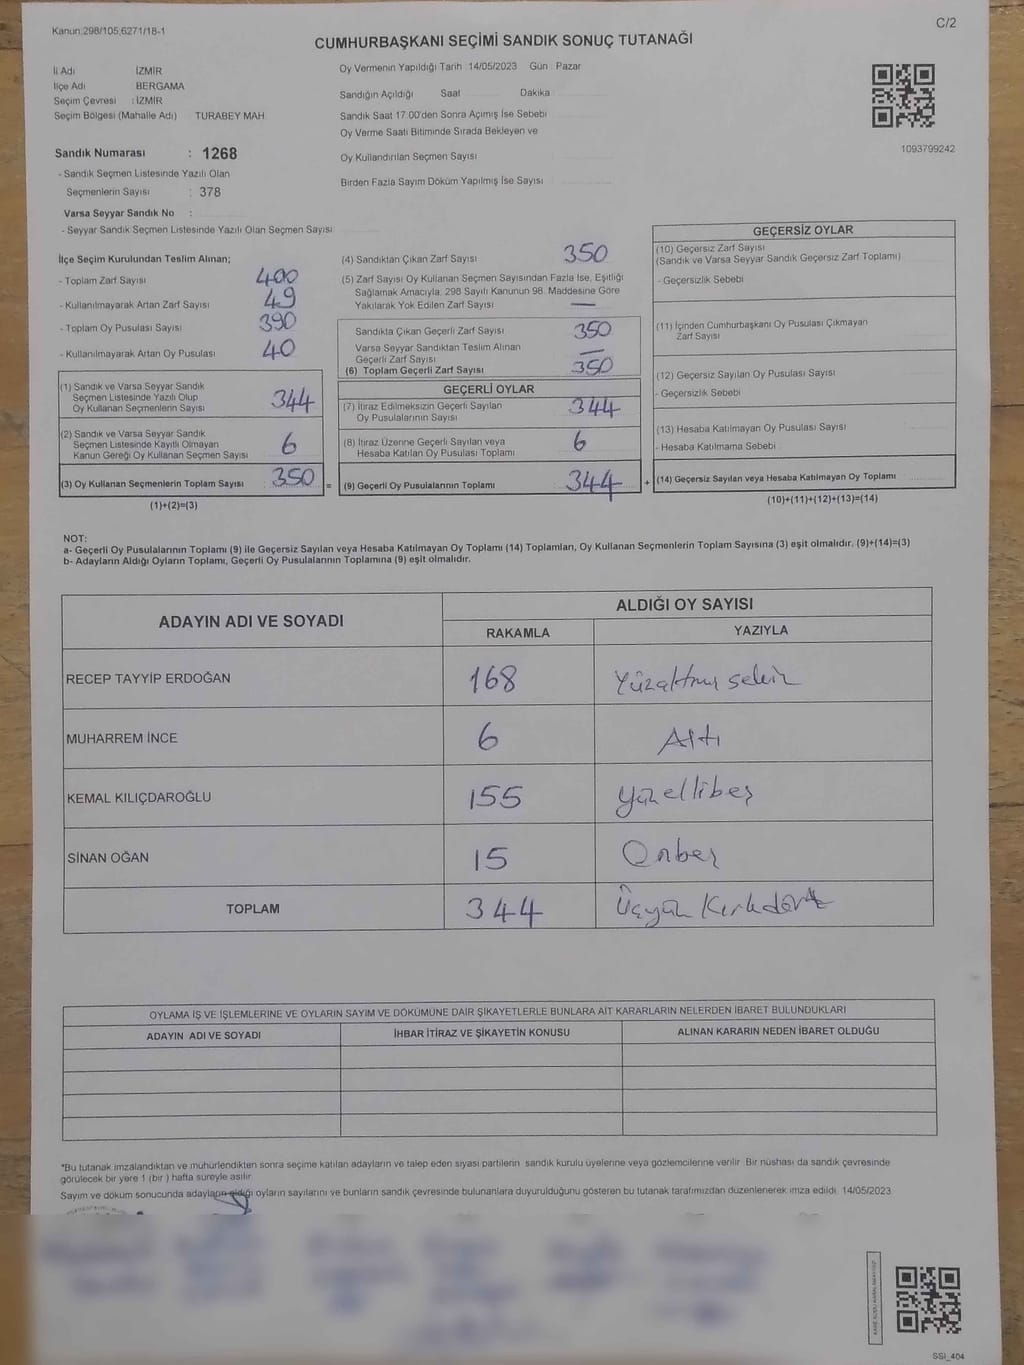 Kanun:298/105,6271/18-1
C/2
CUMHURBAŞKANI SEÇİMİ SANDIK SONUÇ TUTANAĞI
İl Adı İZMİR
İlçe Adı BERGAMA
Seçim Çevresi : İZMİR
Seçim Bölgesi (Mahalle Adı) TURABEY MAH.
Sandık Numarası : 1268
- Sandık Seçmen Listesinde Yazılı Olan
Seçmenlerin Sayısı : 378
Varsa Seyyar Sandık No :
- Seyyar Sandık Seçmen Listesinde Yazılı Olan Seçmen Sayısı:
Oy Vermenin Yapıldığı Tarih : 14/05/2023 Gün : Pazar
Sandığın Açıldığı Saat Dakika
Sandık Saat 17.00'den Sonra Açımış İse Sebebi
Oy Verme Saati Bitiminde Sırada Bekleyen ve
Oy Kullandırılan Seçmen Sayısı
Birden Fazla Sayım Döküm Yapılmış İse Sayısı
1093799242
İlçe Seçim Kurulundan Teslim Alınan;
- Toplam Zarf Sayısı 400
- Kullanılmayarak Artan Zarf Sayısı 49
- Toplam Oy Pusulası Sayısı 390
- Kullanılmayarak Artan Oy Pusulası 40
(1) Sandık ve Varsa Seyyar Sandık
Seçmen Listesinde Yazılı Olup
Oy Kullanan Seçmenlerin Sayısı 344
(2) Sandık ve Varsa Seyyar Sandık
Seçmen Listesinde Kayıtlı Olmayan
Kanun Gereği Oy Kullanan Seçmen Sayısı 6
(3) Oy Kullanan Seçmenlerin Toplam Sayısı 350 =
(1)+(2)=(3)
(4) Sandıktan Çıkan Zarf Sayısı 350
(5) Zarf Sayısı Oy Kullanan Seçmen Sayısından Fazla İse, Eşitliği
Sağlamak Amacıyla, 298 Sayılı Kanunun 98. Maddesine Göre
Yakılarak Yok Edilen Zarf Sayısı —
Sandıkta Çıkan Geçerli Zarf Sayısı 350
Varsa Seyyar Sandıktan Teslim Alınan
Geçerli Zarf Sayısı —
(6) Toplam Geçerli Zarf Sayısı 350
GEÇERLİ OYLAR
(7) İtiraz Edilmeksizin Geçerli Sayılan
Oy Pusulalarının Sayısı 344
(8) İtiraz Üzerine Geçerli Sayılan veya
Hesaba Katılan Oy Pusulası Toplamı 6
(9) Geçerli Oy Pusulalarının Toplamı 344 +
GEÇERSİZ OYLAR
(10) Geçersiz Zarf Sayısı
(Sandık ve Varsa Seyyar Sandık Geçersiz Zarf Toplamı)
- Geçersizlik Sebebi
(11) İçinden Cumhurbaşkanı Oy Pusulası Çıkmayan
Zarf Sayısı
(12) Geçersiz Sayılan Oy Pusulası Sayısı
- Geçersizlik Sebebi
(13) Hesaba Katılmayan Oy Pusulası Sayısı
- Hesaba Katılmama Sebebi
(14) Geçersiz Sayılan veya Hesaba Katılmayan Oy Toplamı
(10)+(11)+(12)+(13)=(14)
NOT:
a- Geçerli Oy Pusulalarının Toplamı (9) ile Geçersiz Sayılan veya Hesaba Katılmayan Oy Toplamı (14) Toplamları, Oy Kullanan Seçmenlerin Toplam Sayısına (3) eşit olmalıdır. (9)+(14)=(3)
b- Adayların Aldığı Oyların Toplamı, Geçerli Oy Pusulalarının Toplamına (9) eşit olmalıdır.
ADAYIN ADI VE SOYADI ALDIĞI OY SAYISI
RAKAMLA YAZIYLA
RECEP TAYYİP ERDOĞAN 168 Yüzaltmış sekiz
MUHARREM İNCE 6 Altı
KEMAL KILIÇDAROĞLU 155 Yüzellibeş
SİNAN OĞAN 15 Onbeş
TOPLAM 344 Üçyüz Kırkdört
OYLAMA İŞ VE İŞLEMLERİNE VE OYLARIN SAYIM VE DÖKÜMÜNE DAİR ŞİKAYETLERLE BUNLARA AİT KARARLARIN NELERDEN İBARET BULUNDUKLARI
ADAYIN ADI VE SOYADI İHBAR İTİRAZ VE ŞİKAYETİN KONUSU ALINAN KARARIN NEDEN İBARET OLDUĞU
*Bu tutanak imzalandıktan ve mühürlendikten sonra seçime katılan adayların ve talep eden siyasi partilerin sandık kurulu üyelerine veya gözlemcilerine verilir. Bir nüshası da sandık çevresinde
görülecek bir yere 1 (bir) hafta süreyle asılır.
Sayım ve döküm sonucunda adayların aldığı oyların sayılarını ve bunların sandık çevresinde bulunanlara duyurulduğunu gösteren bu tutanak tarafımızdan düzenlenerek imza edildi. 14/05/2023
SSI_404